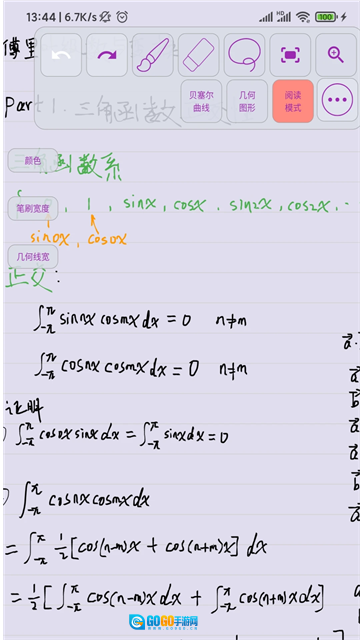 13:44 | 6.7K/s
HD
100
傅里
Part 1. 三角函数
贝塞尔曲线
几何图形
阅读模式
颜色
函数系
笔刷宽度
, 1 , sinx, cosx, sin2x, cos2x, ·
sin0x, cos0x
几何线宽
正交:
∫_{-π}^{π} sin nx cos mx dx = 0 n≠m
∫_{-π}^{π} cos nx cos mx dx = 0 n≠m
证明
) ∫_{-π}^{π} cos0x sinx dx = ∫_{-π}^{π} sinx dx = 0
) ∫_{-π}^{π} cos nx cos mx dx
= ∫_{-π}^{π} 1/2 [cos(n-m)x + cos(n+m)x] dx
= 1/2 [∫_{-π}^{π} cos(n-m)x dx + ∫_{-π}^{π} cos(n+m)x dx]
GOGO手游网